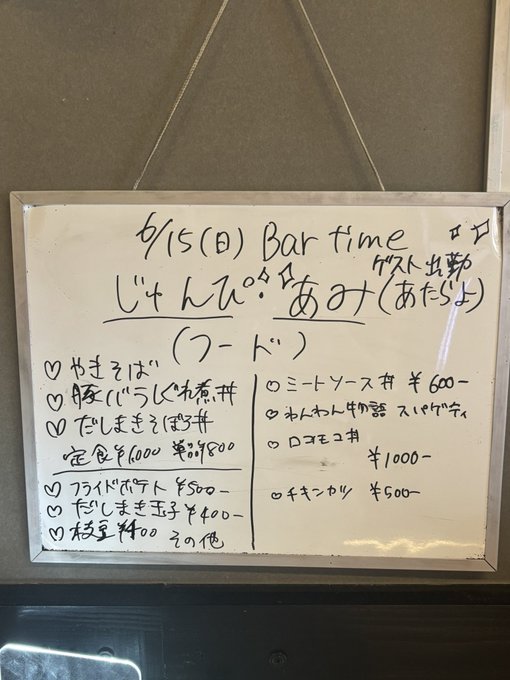 6/15(日) Bar time
ゲスト出勤
じゃんぴ! あみ(あたらよ)
(フード)
♡ やきそば
♡ 豚バラしぐれ煮丼
♡ だしまきそぼろ丼
定食¥1,000 単品¥800
♡ フライドポテト ¥500-
♡ だしまき玉子 ¥400-
♡ 枝豆 ¥400 その他
○ ミートソース丼 ¥600-
○ わんわん物語 スパゲティ
○ ロコモコ丼
¥1000-
○ チキンカツ ¥500-